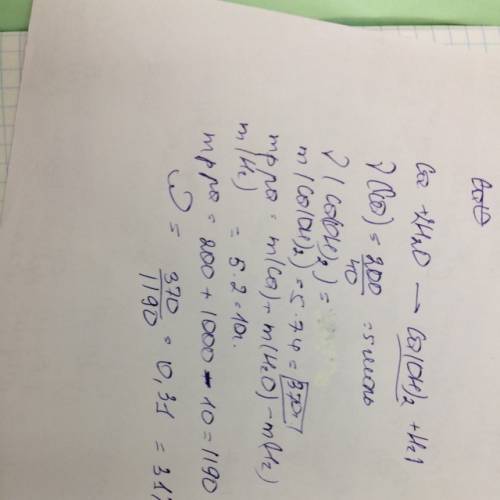 Ca + 2H₂O → Ca(OH)₂ + H₂↑
ν(Ca) = 200/40 = 5 моль
ν(Ca(OH)₂) =
m(Ca(OH)₂) = 5·74 = 370г
mр-ра = m(Ca) + m(H₂O) - m(H₂)
m(H₂) = 5·2 = 10г.
mр-ра = 200 + 1000 - 10 = 1190
ω = 370/1190 = 0,31 = 31%